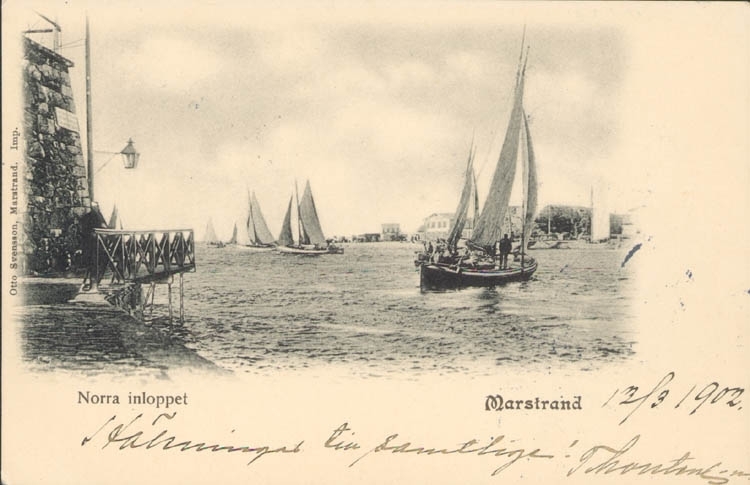 Otto Svensson, Marstrand. Imp.
Norra inloppet
Marstrand
12/3 1902.
Hälsningar till samtlige!